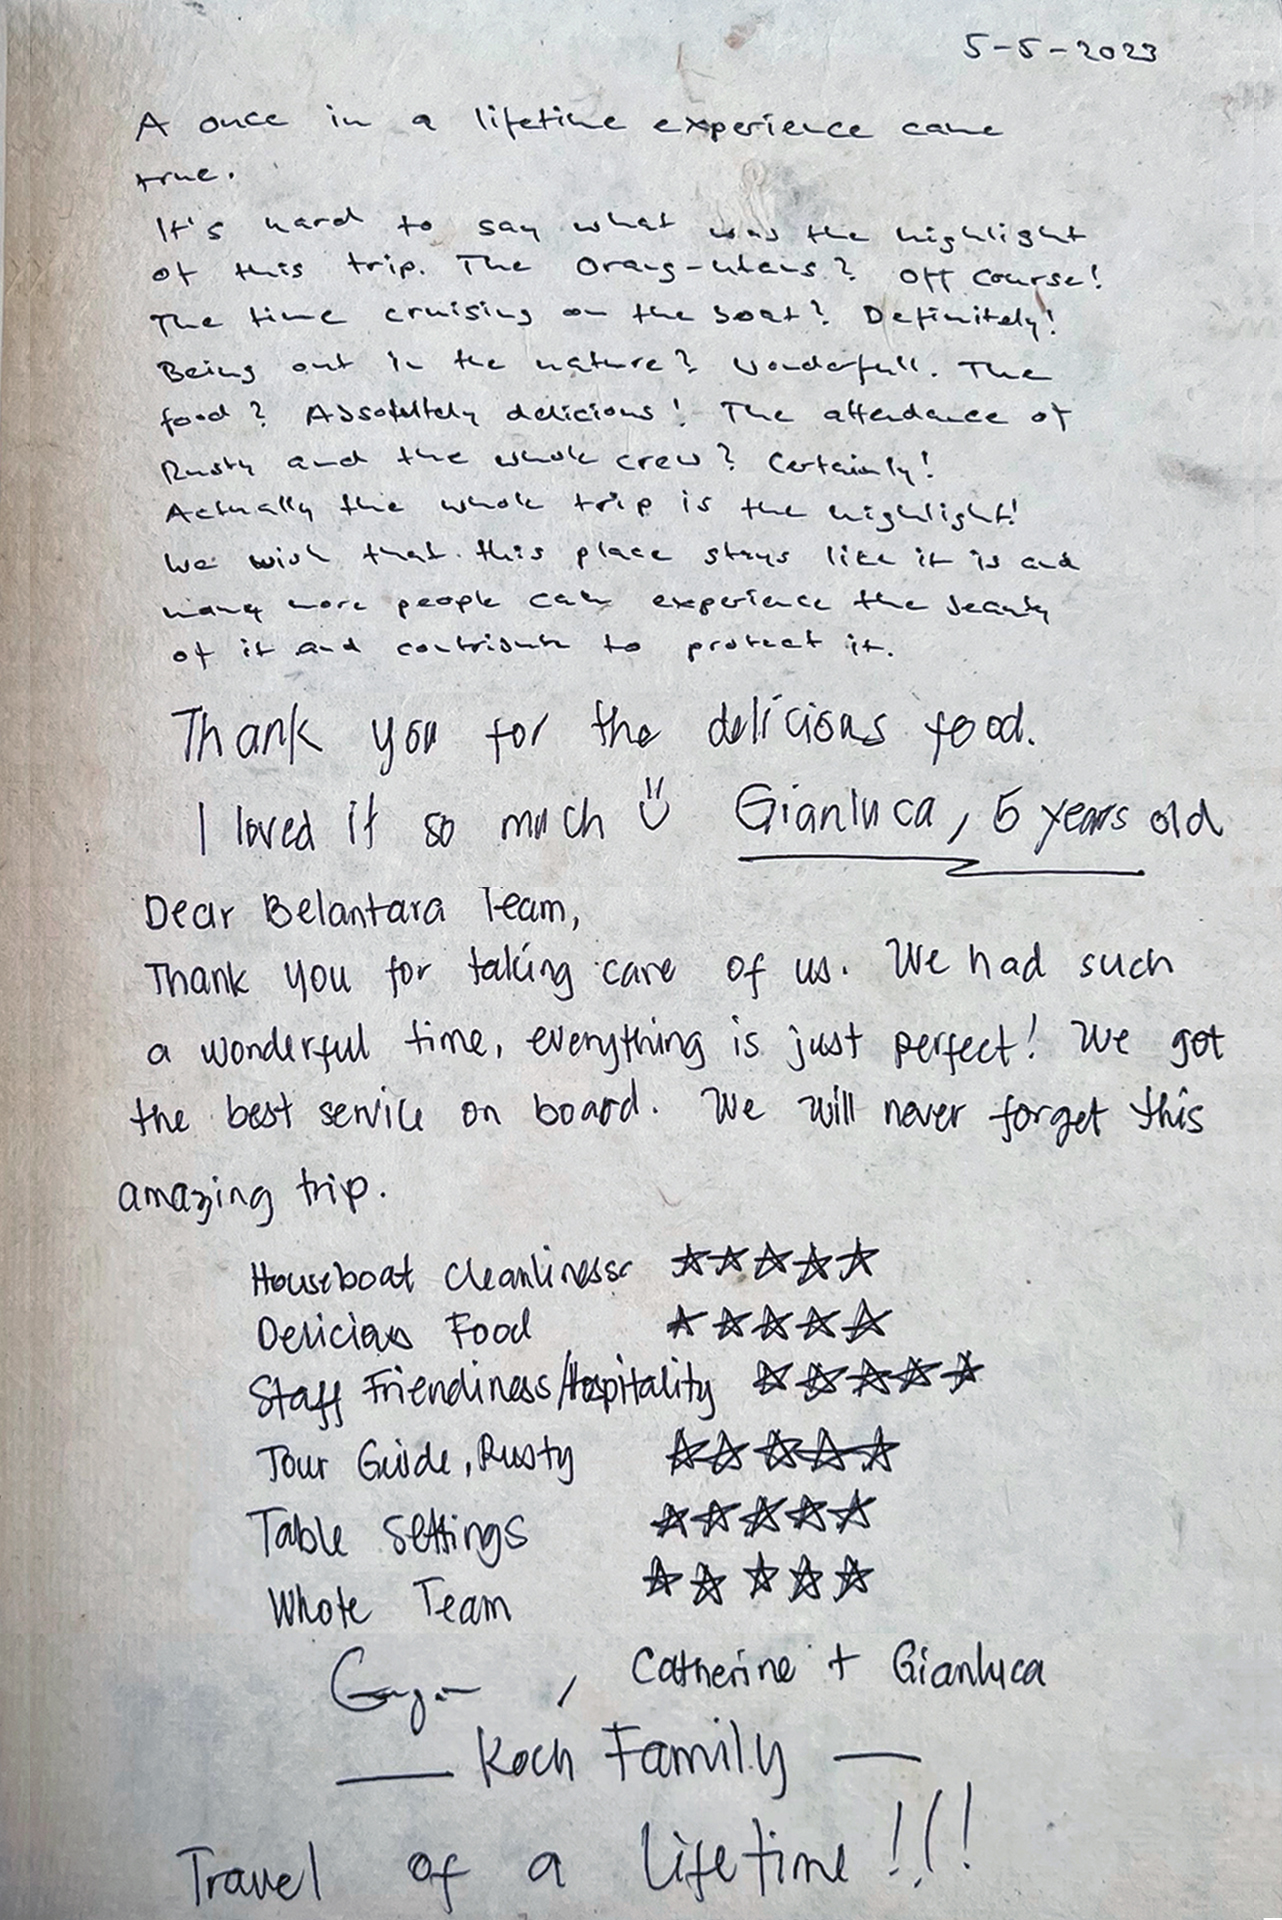 5-5-2023
A once in a lifetime experience came
true.
It's hard to say what was the highlight
of this trip. The Orang-utans? Off course!
The time cruising on the boat? Definitely!
Being out in the nature? Wonderfull. The
food? Absolutely delicious! The attendance of
Rusty and the whole crew? Certainly!
Actually the whole trip is the highlight!
We wish that this place stays like it is and
many more people can experience the beauty
of it and contribute to protect it.
Thank you for the delicious food.
I loved it so much Gianluca, 5 years old
Dear Belantara Team,
Thank you for taking care of us. We had such
a wonderful time, everything is just perfect! We got
the best service on board. We will never forget this
amazing trip.
Houseboat Cleanliness ★★★★★
Delicious Food ★★★★★
Staff Friendiness/Hospitality ★★★★★
Tour Guide, Rusty ★★★★★
Table Settings ★★★★★
Whole Team ★★★★★
, Catherine + Gianluca
— Koch Family —
Travel of a lifetime!!!